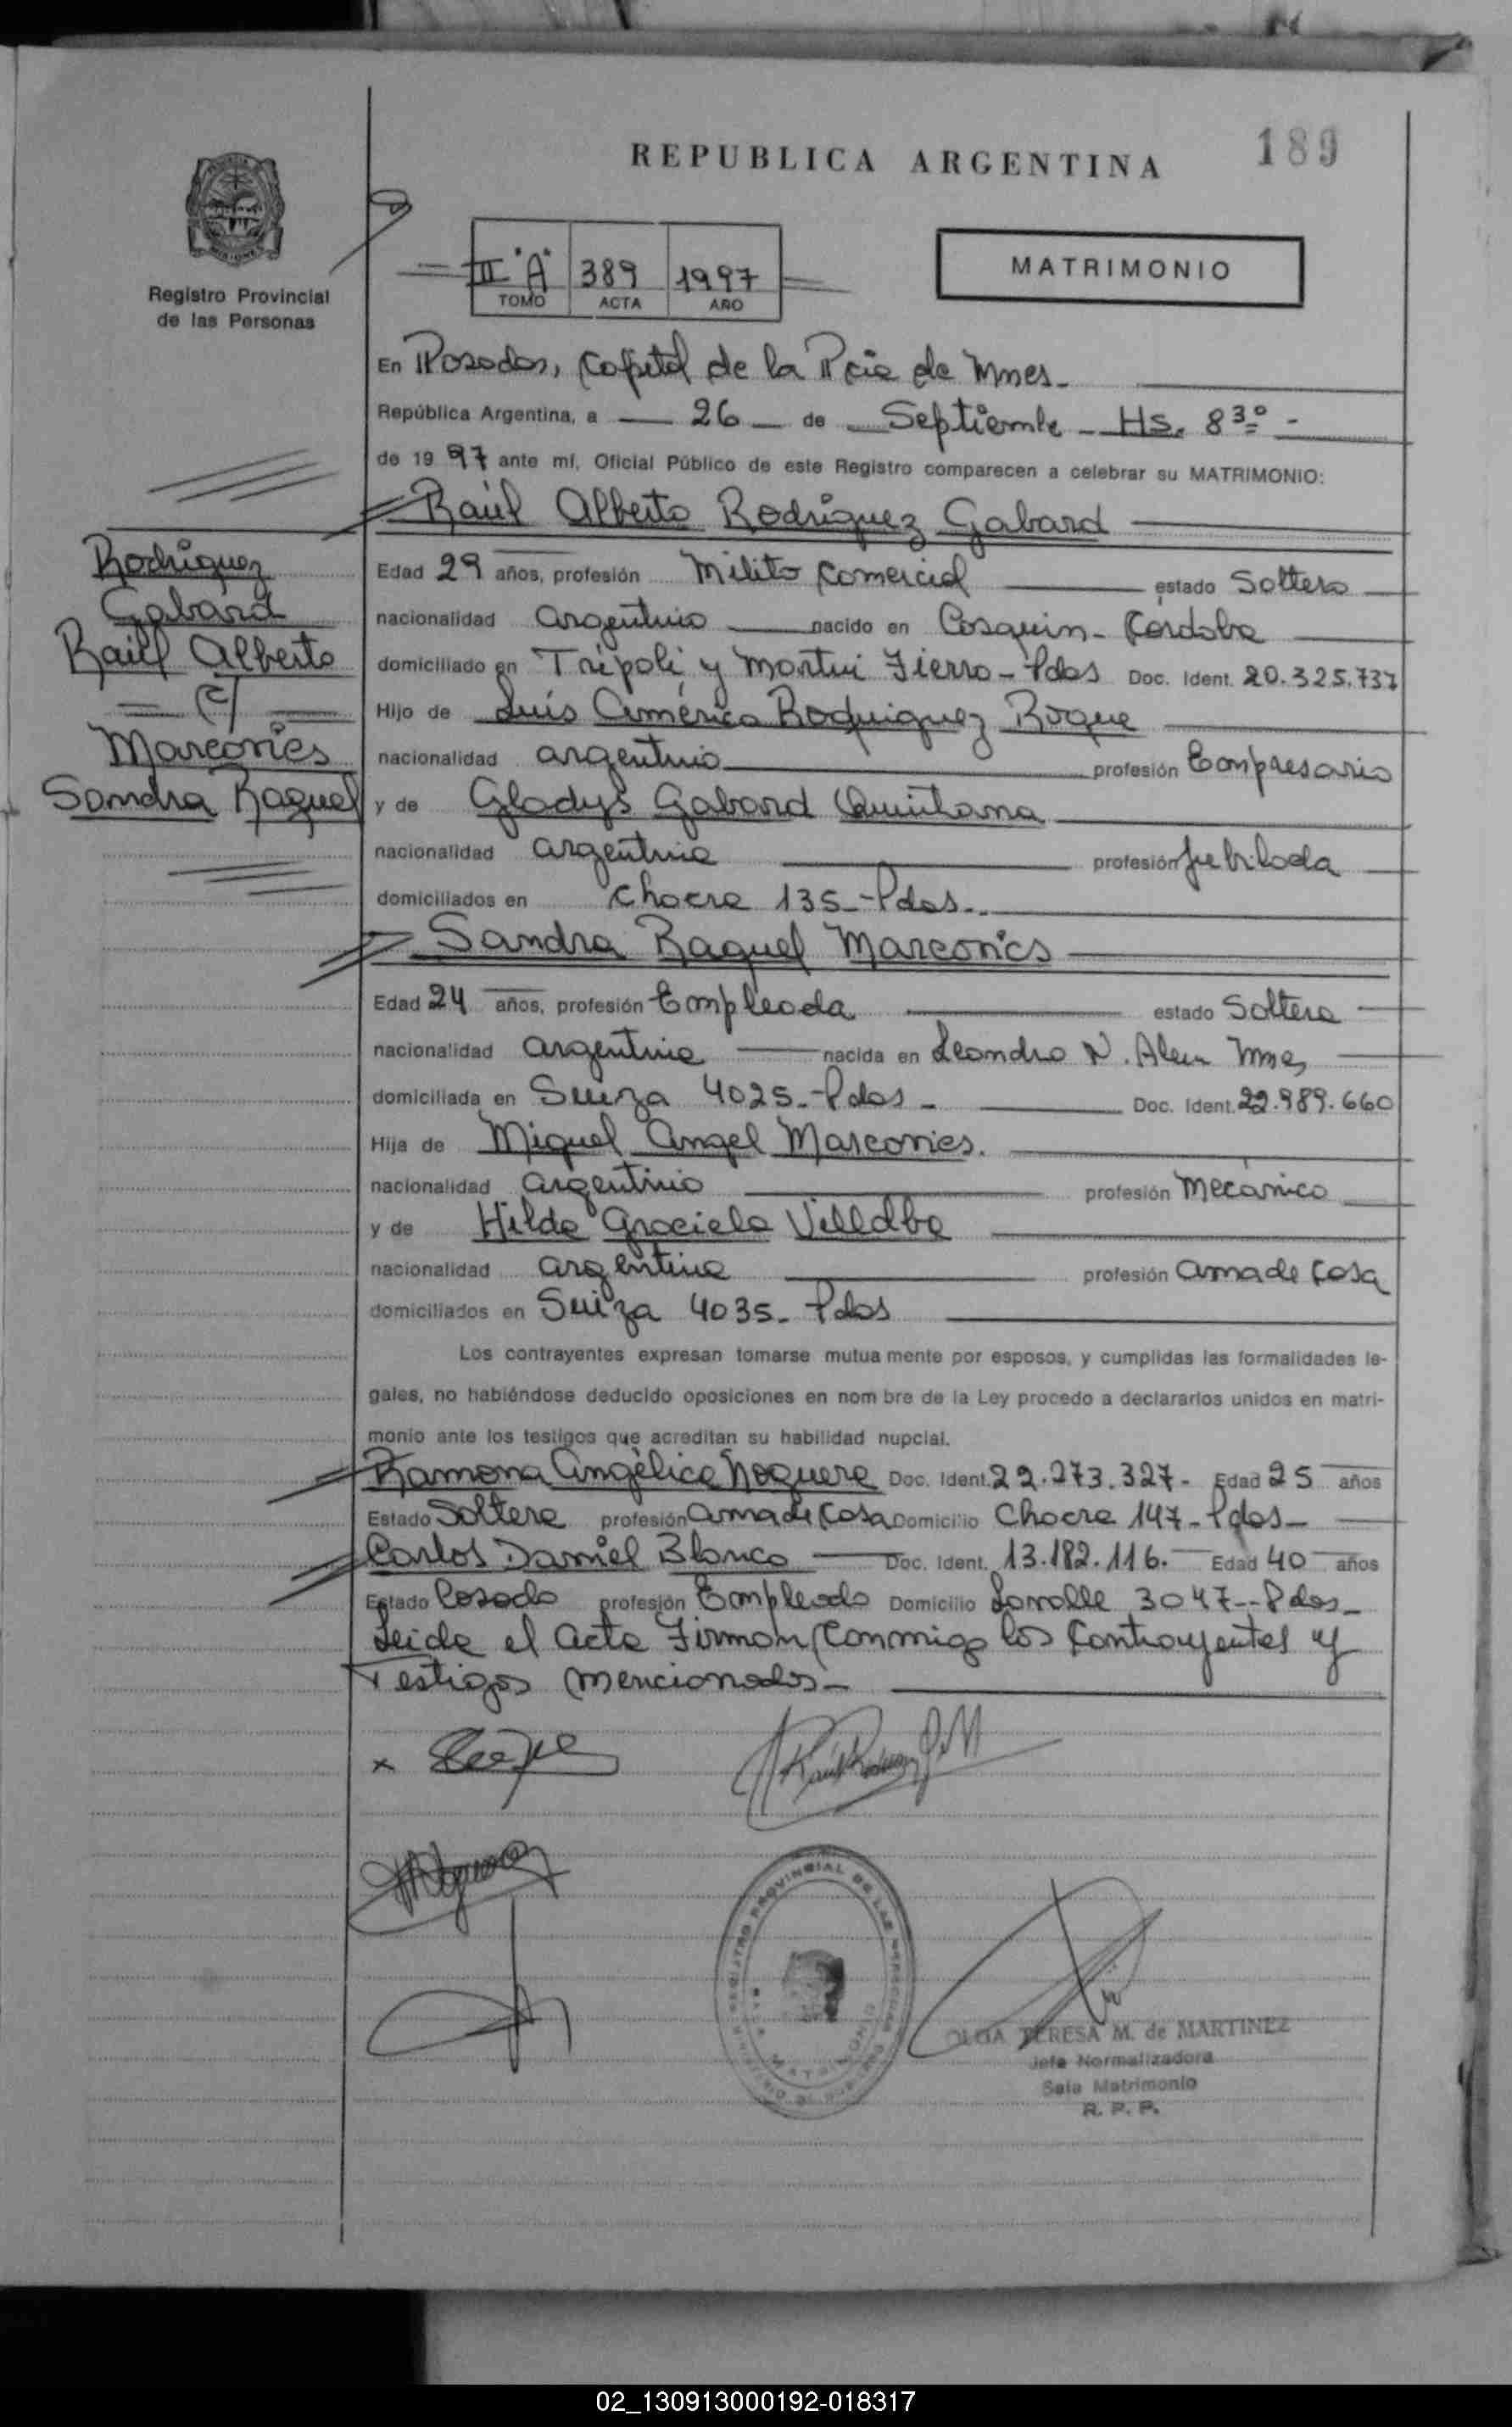 REPUBLICA ARGENTINA
189
Registro Provincial
de las Personas
III "A" 389 1997
TOMO ACTA AÑO
MATRIMONIO
En Posadas, Capital de la Pcia de Mnes.
República Argentina, a 26 de Septiembre Hs. 8 30
de 1997 ante mí, Oficial Público de este Registro comparecen a celebrar su MATRIMONIO:
Raúl Alberto Rodríguez Gabard
Rodríguez
Gabard
Raúl Alberto
c/
Marconies
Sandra Raquel
Edad 29 años, profesión comercial estado Soltero
nacionalidad argentino nacido en Cosquin - Córdoba
domiciliado en Trípoli y Martín Fierro - Pdas Doc. Ident. 20.325.737
Hijo de Luis América Rodriguez Roque
nacionalidad argentino profesión Empresario
y de Gladys Gabard Quintana
nacionalidad argentina profesión Jubilada
domiciliados en Chacra 135 - Pdas.
Sandra Raquel Marconics
Edad 24 años, profesión Empleada estado Soltera
nacionalidad argentina nacida en Leandro N. Alem Mnes
domiciliada en Suiza 4025 - Pdas - Doc. Ident. 22.989.660
Hija de Miguel Angel Marconies.
nacionalidad argentino profesión mecánico
y de Hilda Graciela Villalba
nacionalidad argentina profesión ama de casa
domiciliados en Suiza 4035 - Pdas
Los contrayentes expresan tomarse mutua mente por esposos, y cumplidas las formalidades le-
gales, no habiéndose deducido oposiciones en nom bre de la Ley procedo a declararlos unidos en matri-
monio ante los testigos que acreditan su habilidad nupcial.
Ramona Angélica Noguera Doc. Ident. 22.273.327 - Edad 25 años
Estado Soltera profesión ama de casa Domicilio Chacra 147 - Pdas -
Carlos Daniel Blanco Doc. Ident. 13.182.116. Edad 40 años
Estado Casado profesión Empleado Domicilio Lavalle 3047 - Pdas -
Leida el acta Firman conmigo los contrayentes y
Testigos mencionados -
REGISTRO PROVINCIAL DE LAS PERSONAS
OLGA TERESA M. de MARTINEZ
Jefa Normalizadora
Sala Matrimonio
R. P. P.
02_130913000192-018317